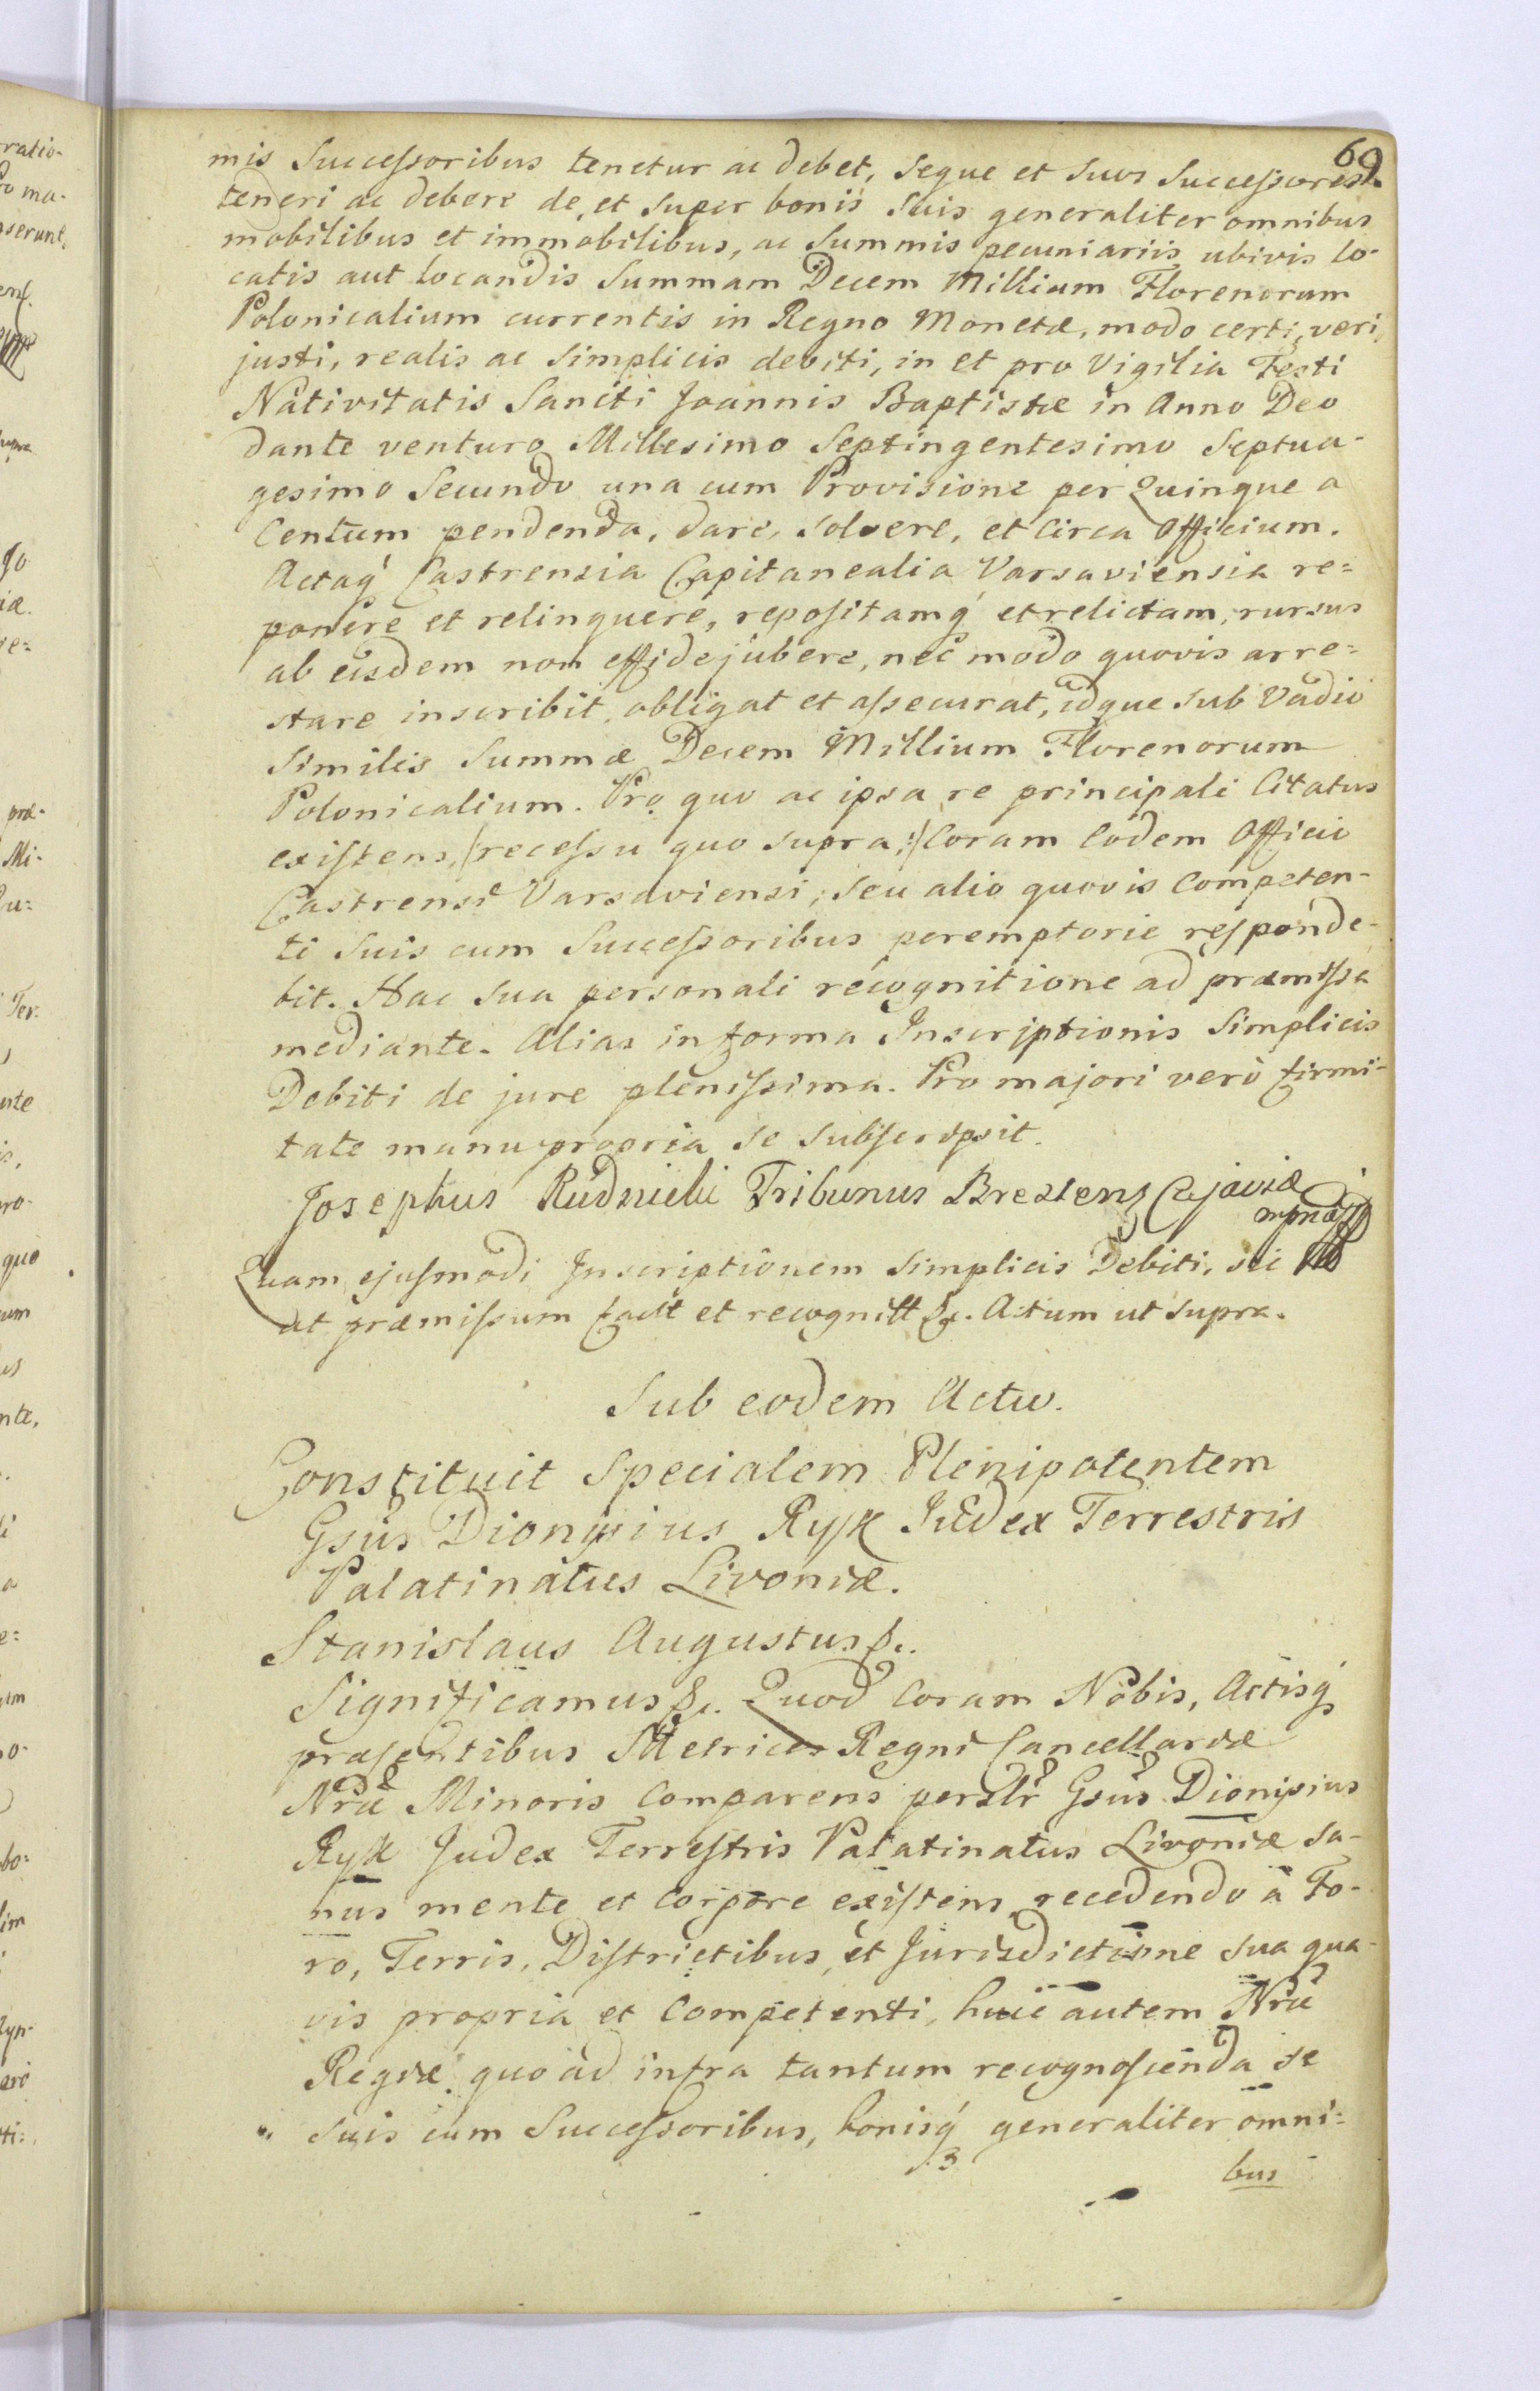 69.
mis Successoribus tenetur ac debet, seque et suos Successores
teneri ac debere de, et super bonis suis generaliter omnibus
mobilibus et immobilibus, ac summis pecuniariis ubivis lo-
catis aut locandis Summam Decem Millium Florenorum
Polonicalium currentis in Regno Monetæ, modo certi, veri,
justi, realis ac simplicis debiti, in et pro Vigilia Festi
Nativitatis Sancti Joannis Baptistæ in Anno Deo
dante venturo Millesimo Septingentesimo Septua-
gesimo Secundo una cum Provisione per Quinque a
Centum pendenda, dare, solvere, et circa Officium.
Actaq́ Castrensia Capitanealia Varsaviensia re=
ponere et relinquere, repositamq́ et relictam, rursus
ab eisdem non effidejubere, nec modo quovis arre=
stare inscribit, obligat et assecurat, idque sub Vadio
similis Summæ Decem Millium Florenorum
Polonicalium. Pro quo ac ipsa re principali Citatus
existens, /recessu quo supra,:/ Coram Eodem Officio
Castrensi Varsaviensi, seu alio quovis Competen-
ti suis cum Successoribus peremptorie responde-
bit. Hac sua personali recognitione ad præmissa
mediante. Alias in forma Inscriptionis Simplicis
Debiti de jure plenissima. Pro majori verò firmi-
tate manu propria se subscripsit.
Josephus Rudnicki Tribunus Brestens Cujaviæ
mpria
Quam ejusmodi Inscriptionem Simplicis Debiti, sic
ut præmissum factt et recognitt &c. Actum ut supra.
Sub eodem Actu.
Constituit Specialem Plenipotentem
Gsus Dionysius Ryk Judex Terrestris
Palatinatus Livoniæ.
Stanislaus Augustus &c.
Significamus &c. Quod Coram Nobis, Actisq́
præsentibus Metrices Regni Cancellariæ
Nræ Minoris Comparens persltr Gsus Dionisius
Ryk Judex Terrestris Palatinatus Livoniæ sa-
nus mente et corpore existens, recedendo à Fo-
ro, Terris, Districtibus, et Jurisdictione sua qua-
vis propria et Competenti, huic autem Nræ
Regiæ quo ad infra tantum recognoscenda se
suis cum Successoribus, bonisq́ generaliter omni=
bus